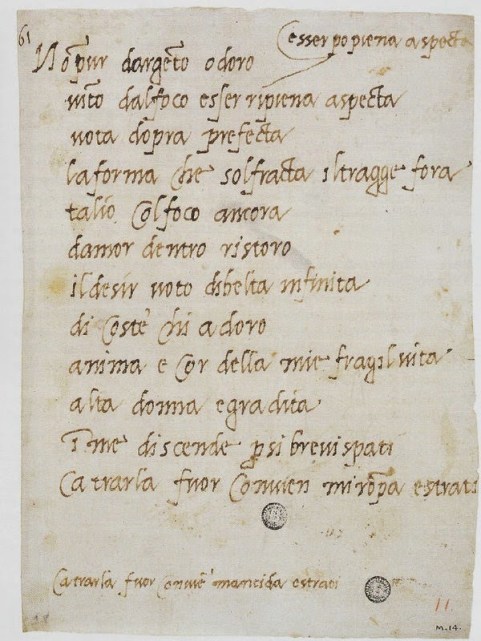 61
esser po piena aspecta
Nō pur d argēto o d oro
uīto dal foco esser ripiena aspecta
uota d opra prefecta
la forma che sol fracta il tragge fora
tal io col foco ancora
d amor dentro ristoro
il desir uoto di belta infinita
di coste chi adoro
anima e cor della mie fragil uita
alta donna e gradita
ī me discende ꝑ si brevi spati
c a trarla fuor conuien mi rōpa e strati
c a trarla fuor conuiē m ancida e strati
11.
M.14.